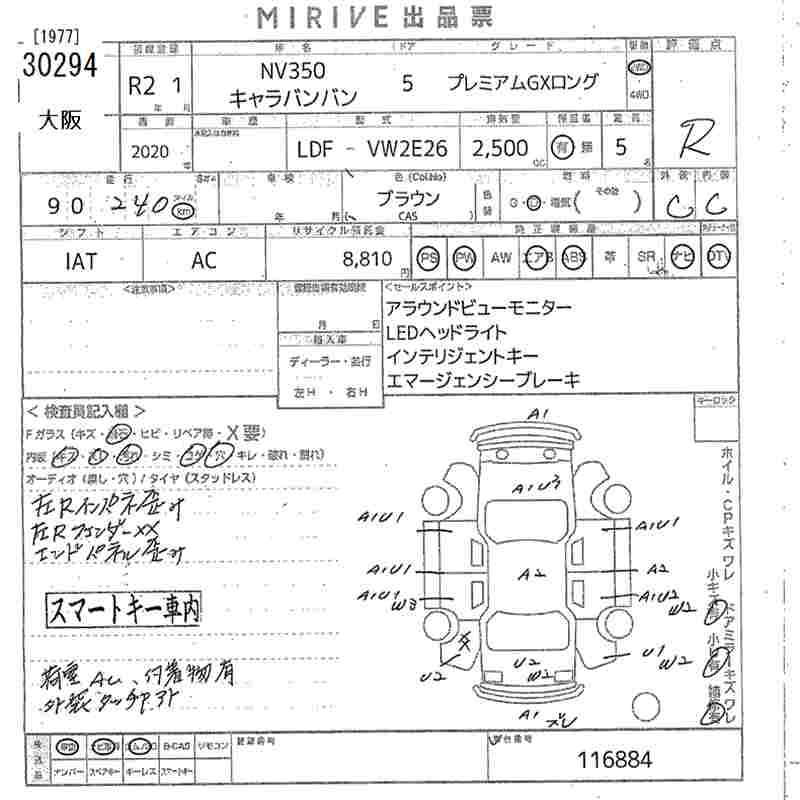 MIRIVE 出品票
[1977]
30294
大阪
R2 1
年 月
車名
NV350
キャラバンバン
ドア
5
グレード
プレミアムGXロング
4WD
評価点
R
2020
車歴
型式
LDF - VW2E26
排気量
2,500
CC
有 無
定員
5
名
走行
90 240
km
車検
年 月
色 (Col.No)
ブラウン
(CAS)
燃料
その他
外装 内装
C C
シフト
IAT
エアコン
AC
リサイクル預託金
8,810
円
純正装備品
PS PW AW エアB ABS 革 SR ナビ DTV
<注意事項>
月 日
輸入車
ディーラー・並行
左H ・ 右H
<セールスポイント>
アラウンドビューモニター
LEDヘッドライト
インテリジェントキー
エマージェンシーブレーキ
キーロック
<検査員記入欄>
Fガラス (キズ・飛石・ヒビ・リペア跡・X要)
シミ・コゲ・穴・キレ・破れ・割れ)
オーディオ (無し・穴) / タイヤ (スタッドレス)
左Rインパネ歪み
左Rフェンダー XX
エンドパネル歪み
スマートキー車内
付着物有
外装タッチアト
A1
A1U3
A1U1
A1U1
A1U1
A2
A2
A1U1
W3
A1U2
W2
U1
W2
U2
U2
W2
A1
ホイル・CPキズワレ
ドアミラーキズワレ
B-CAS リモコン
ナンバー スペアキー キーレス スマートキー
登録番号
車台番号
116884